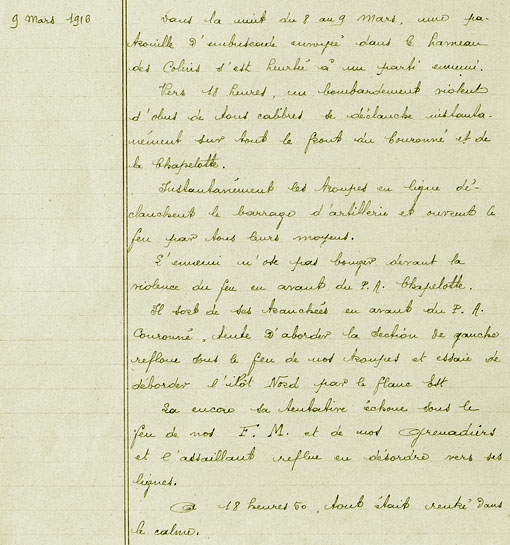 9 Mars 1916
Dans la nuit du 8 au 9 Mars, une pa-
trouille d'embuscade envoyée dans le hameau
des Colins s'est heurtée à un parti ennemi.
Vers 18 heures, un bombardement violent
d'obus de tous calibres se déclanche instanta-
nément sur tout le front du Couronné et de
la Chapelotte.
Instantanément les troupes en ligne dé-
clanchent le barrage d'artillerie et ouvrent le
feu par tous leurs moyens.
L'ennemi n'ose pas bouger devant la
violence du feu en avant du P.A. Chapelotte.
Il sort de ses tranchées en avant du P.A.
Couronné, tente d'aborder la section de gauche
reflue sous le feu de nos troupes et essaie de
déborder l'ilôt Nord par le flanc Est
Là encore sa tentative échoue sous le
feu de nos F.M. et de nos grenadiers
et l'assaillant reflue en désordre vers ses
lignes.
A 18 heures 50, tout était rentré dans
le calme.